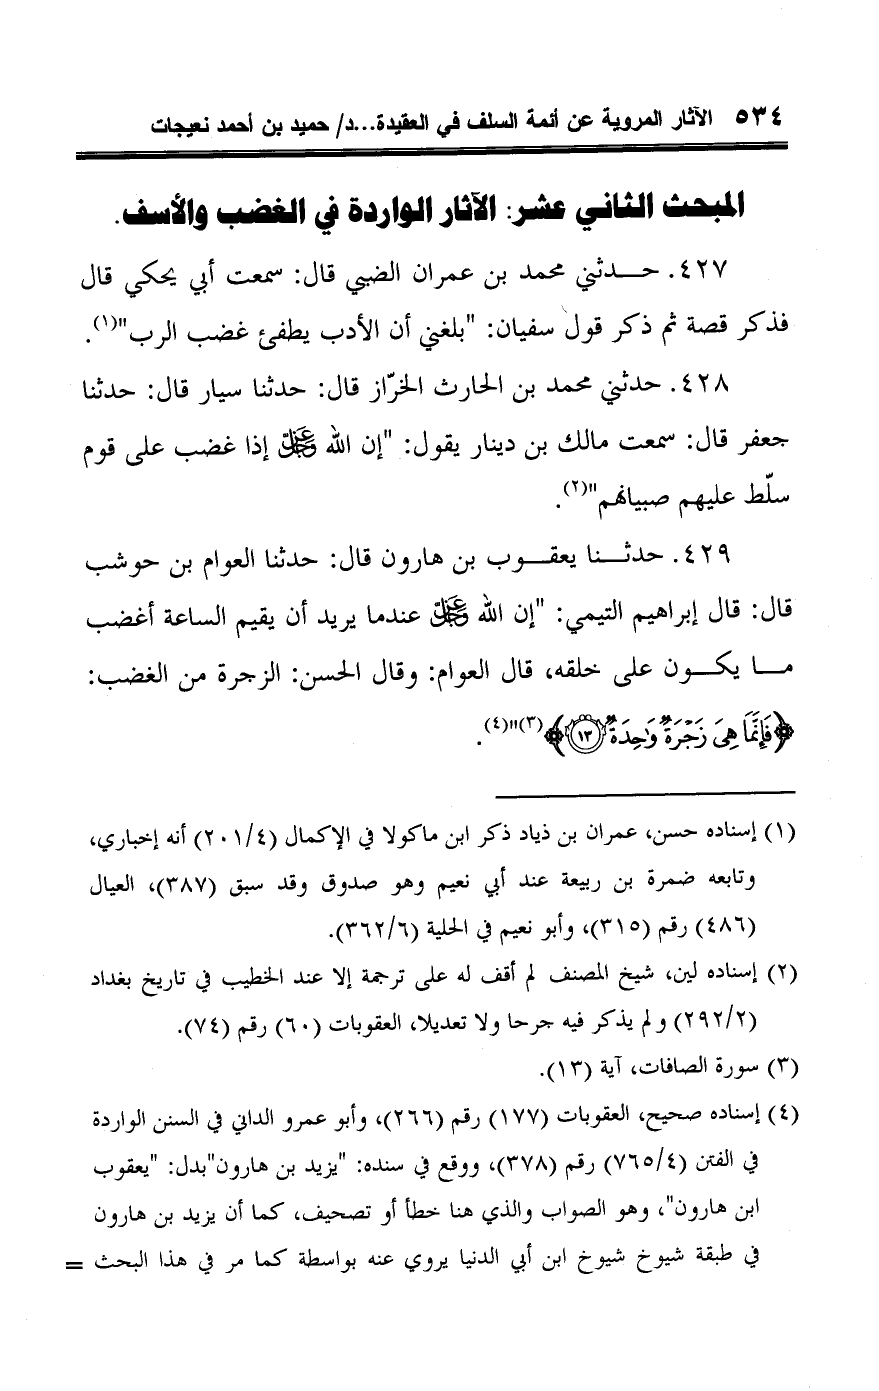 ٥٣٤ الآثار المروية عن أئمة السلف في العقيدة...د/ حميد بن أحمد نعيجات
المبحث الثاني عشر: الآثار الواردة في الغضب والأسف.
٤٢٧. حدثني محمد بن عمران الضبي قال: سمعت أبي يحكي قال
فذكر قصة ثم ذكر قول سفيان: "بلغني أن الأدب يطفئ غضب الرب"(١).
٤٢٨. حدثني محمد بن الحارث الخرّاز قال: حدثنا سيار قال: حدثنا
جعفر قال: سمعت مالك بن دينار يقول: "إن الله عز وجل إذا غضب على قوم
سلّط عليهم صبيانهم"(٢).
٤٢٩. حدثنا يعقوب بن هارون قال: حدثنا العوام بن حوشب
قال: قال إبراهيم التيمي: "إن الله عز وجل عندما يريد أن يقيم الساعة أغضب
ما يكون على خلقه، قال العوام: وقال الحسن: الزجرة من الغضب:
﴿فَإِنَّمَا هِيَ زَجْرَةٌ وَاحِدَةٌ ١٣﴾(٣)"(٤).
(١) إسناده حسن، عمران بن ذياد ذكر ابن ماكولا في الإكمال (٢٠١/٤) أنه إخباري،
وتابعه ضمرة بن ربيعة عند أبي نعيم وهو صدوق وقد سبق (٣٨٧)، العيال
(٤٨٦) رقم (٣١٥)، وأبو نعيم في الحلية (٣٦٢/٦).
(٢) إسناده لين، شيخ المصنف لم أقف له على ترجمة إلا عند الخطيب في تاريخ بغداد
(٢٩٢/٢) ولم يذكر فيه جرحا ولا تعديلا، العقوبات (٦٠) رقم (٧٤).
(٣) سورة الصافات، آية (١٣).
(٤) إسناده صحيح، العقوبات (١٧٧) رقم (٢٦٦)، وأبو عمرو الداني في السنن الواردة
في الفتن (٧٦٥/٤) رقم (٣٧٨)، ووقع في سنده: "يزيد بن هارون"بدل: "يعقوب
ابن هارون"، وهو الصواب والذي هنا خطأ أو تصحيف، كما أن يزيد بن هارون
في طبقة شيوخ شيوخ ابن أبي الدنيا يروي عنه بواسطة كما مر في هذا البحث =